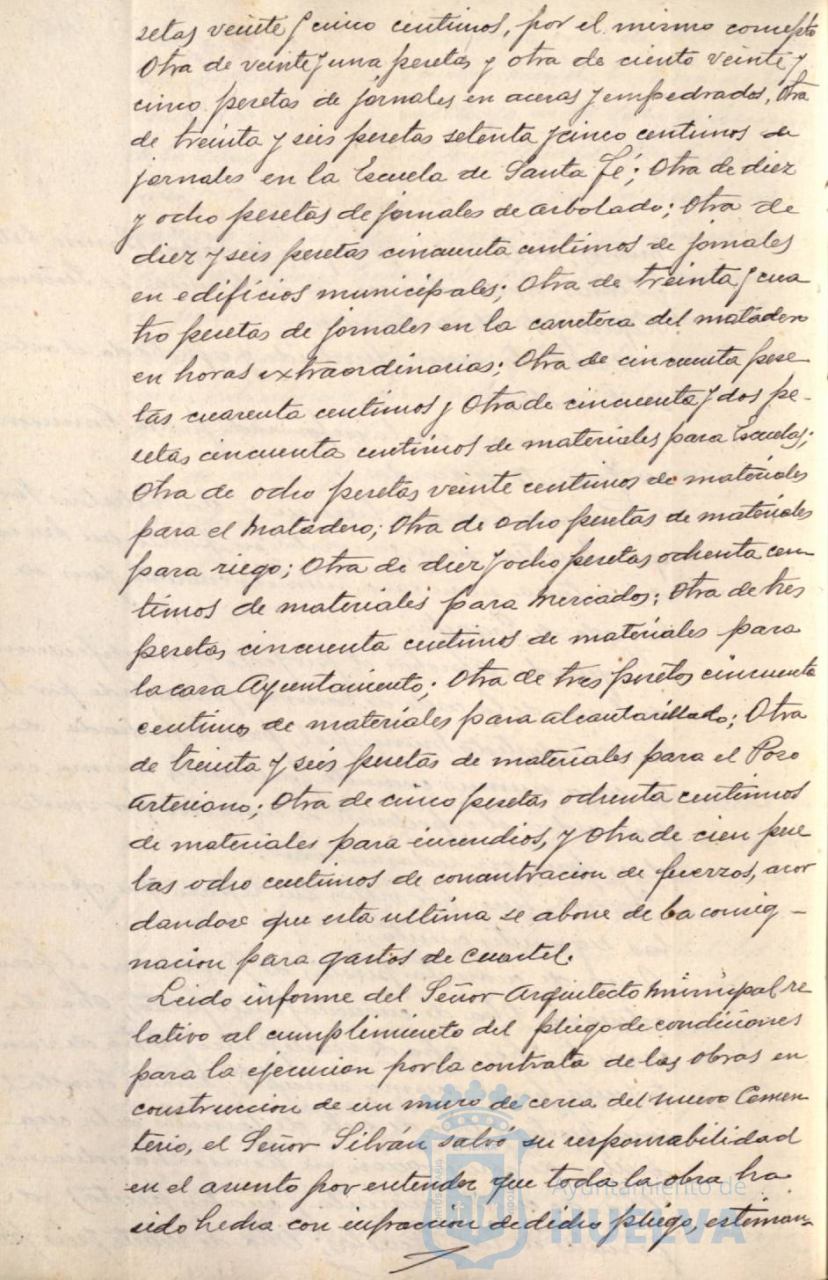 setas veinte y cinco centimos, por el mismo concepto
Otra de veinte y una pesetas y otra de ciento veinte y
cinco pesetas de jornales en aceras y empedrados, Otra
de treinta y seis pesetas setenta y cinco centimos de
jornales en la Escuela de Santa Fé; Otra de diez
y ocho pesetas de jornales de arbolado; Otra de
diez y seis pesetas cincuenta centimos de jornales
en edificios municipales; Otra de treinta y cua
tro pesetas de jornales en la carretera del matadero
en horas extraordinarias; Otra de cincuenta pese
tas cuarenta centimos y Otra de cincuenta y dos pe-
setas cincuenta centimos de materiales para Escuelas;
Otra de ocho pesetas veinte centimos de materiales
para el Matadero; Otra de ocho pesetas de materiales
para riego; Otra de diez y ocho pesetas ochenta cen
timos de materiales para Mercados; Otra de tres
pesetas cincuenta centimos de materiales para
la casa Ayuntamiento; Otra de tres pesetas cincuenta
centimos de materiales para alcantarillado; Otra
de treinta y seis pesetas de materiales para el Pozo
Artesiano; Otra de cinco pesetas ochenta centimos
de materiales para incendios, y Otra de cien pese
tas ocho centimos de concentracion de fuerzos, acor
dandose que esta ultima se abone de la consig-
nacion para gastos de cuartel.
Leido informe del Señor Arquitecto Municipal re
lativo al cumplimiento del pliego de condiciones
para la ejecucion por la contrata de las obras en
construccion de un muro de cerca del nuevo Cemen
terio, el Señor Silván salvó su responsabilidad
en el asunto por entender que toda la obra ha
sido hecha con infracción de dicho pliego, estiman-
Ayuntamiento de
HUELVA